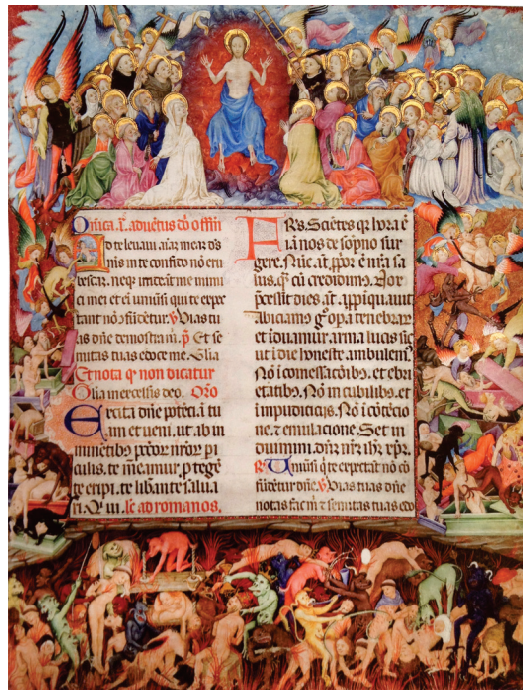 Onica .i. aduētus dō offm̄
Ad te leuaui aīaz meaz ds̄
m̄s in te confito nō eru
bescar. neq̄ irrideāt me inimi
ci mei et eī uniūsi qui te expe
tant nō 9fūdētur. ꝟ Uias tu
as dn̄e demōstra m̄. p̄ Et se
mitas tuas edoce me. Glīa
Et nota q̄ non dicatur
Glīa in excelsis deo. Oro
Excita dn̄e potēn̄. ī tu
am et ueni. ut. ab in
minētibz pctōr nr̄or pi
culis. te mēamur. p̄tegē
te eripi. te libante salua
ri. Q̄ ui. le ad romanos.
FR̄s. Sciētes qz hora ē
iā nos de sōpno sur
gere. Nūc. at̄. ꝓpor ē nr̄a sa
lus. q̄ cū credidim9. Nox
p̄cessit dies. at̄. appīqauit
Abiciam9 g° opa tenebraz
et iduamur arma lucis sic
ut i die honeste ambulem9.
Nō i comessacōibz. et ebri
etatibz. Nō in cubilibz. et
i impudiciciis. Nō i cōtēcio
ne. z emulacione. Set in
duimini. dn̄z nr̄z ihz xp̄z.
R̄ Uniūsi q̄ te expetāt nō cō
fūdētur dn̄e. ꝟ Uias tuas dn̄e
notas fac m̄ z semitas tuas edo